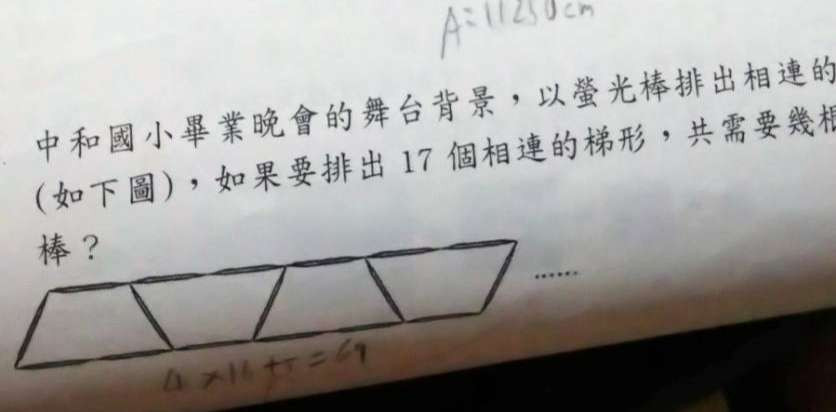 A=11250cm
中和國小畢業晚會的舞台背景，以螢光棒排出相連的
(如下圖)，如果要排出 17 個相連的梯形，共需要幾根
棒？
......
4×16+5=69